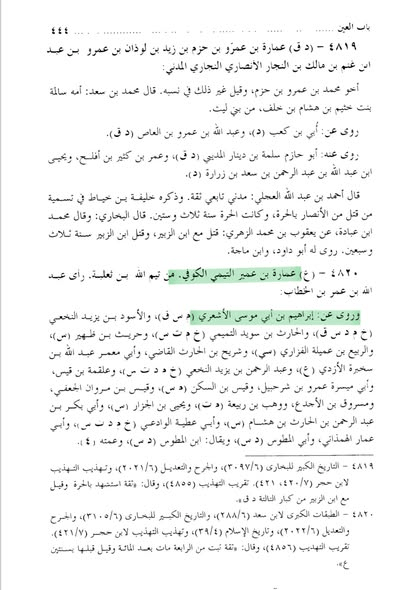 باب العين ٤٤٤
٤٨١٩ – (د ق) عمارة بن عمرو بن حزم بن زيد بن لوذان بن عمرو بن عبد
ابن غنم بن مالك بن النجار الأنصاري النجاري المدني:
أخو محمد بن عمرو بن حزم، وقيل غير ذلك في نسبه. قال محمد بن سعد: أمه سالمة
بنت خثيم بن هشام بن خلف، من بني ليث.
روى عن: أُبي بن كعب (د)، وعبد الله بن عمرو بن العاص (د ق).
روى عنه: أبو حازم سلمة بن دينار المديني (د ق)، وعمر بن كثير بن أفلح، ويحيى
ابن عبد الله بن عبد الرحمن بن سعد بن زرارة (د).
قال أحمد بن عبد الله العجلي: مدني تابعي ثقة. وذكره خليفة بن خياط في تسمية
من قتل من الأنصار بالحرة، وكانت الحرة سنة ثلاث وستين. قال البخاري: وقال محمد
ابن عبادة، عن يعقوب بن محمد الزهري: قتل مع ابن الزبير، وقتل ابن الزبير سنة ثلاث
وسبعين. روى له أبو داود، وابن ماجة.
٤٨٢٠ – (ع) عمارة بن عمير التيمي الكوفي، من تيم الله بن ثعلبة، رأى عبد
الله بن عمر بن الخطاب:
وروى عن: إبراهيم بن أبي موسى الأشعري (م س ق)، والأسود بن يزيد النخعي
(خ م د س ق)، والحارث بن سويد التميمي (خ م ت س)، وحريث بن ظهير (س)،
والربيع بن عميلة الفزاري (سي)، وشريح بن الحارث القاضي، وأبي معمر عبد الله بن
سخبرة الأزدي (ع)، وعبد الرحمن بن يزيد النخعي (خ م د ت س)، وعلقمة بن قيس،
وأبي ميسرة عمرو بن شرحبيل، وقيس بن السكن (م س)، وقيس بن مروان الجعفي،
ومسروق بن الأجدع، ووهب بن ربيعة (م ت)، ويحيى بن الجزار (س)، وأبي بكر بن
عبد الرحمن بن الحارث بن هشام (س)، وأبي عطية الوادعي (خ م د ت س)، وأبي
عمار الهمداني، وأبي المطوس (د س)، ويقال: ابن المطوس (د س)، وعمته (٤).
٤٨١٩ – التاريخ الكبير للبخارى (٣٠٩٧/٦)، والجرح والتعديل (٢٠٢١/٦)، وتهذيب التهذيب
لابن حجر (٤٢٠/٧، ٤٢١)، تقريب التهذيب (٤٨٥٥)، وقال: «ثقة استشهد بالحرة وقيل
مع ابن الزبير من كبار الثالثة د ق».
٤٨٢٠ – الطبقات الكبرى لابن سعد (٢٨٨/٦)، والتاريخ الكبير للبخارى (٣١٠٥/٦)، والجرح
والتعديل (٢٠٢٢/٦)، وتاريخ الإسلام (٣٩/٤)، وتهذيب التهذيب لابن حجر (٤٢١/٧)،
تقريب التهذيب (٤٨٥٦)، وقال: «ثقة ثبت من الرابعة مات بعد المائة وقيل قبلها بسنتين
ع».